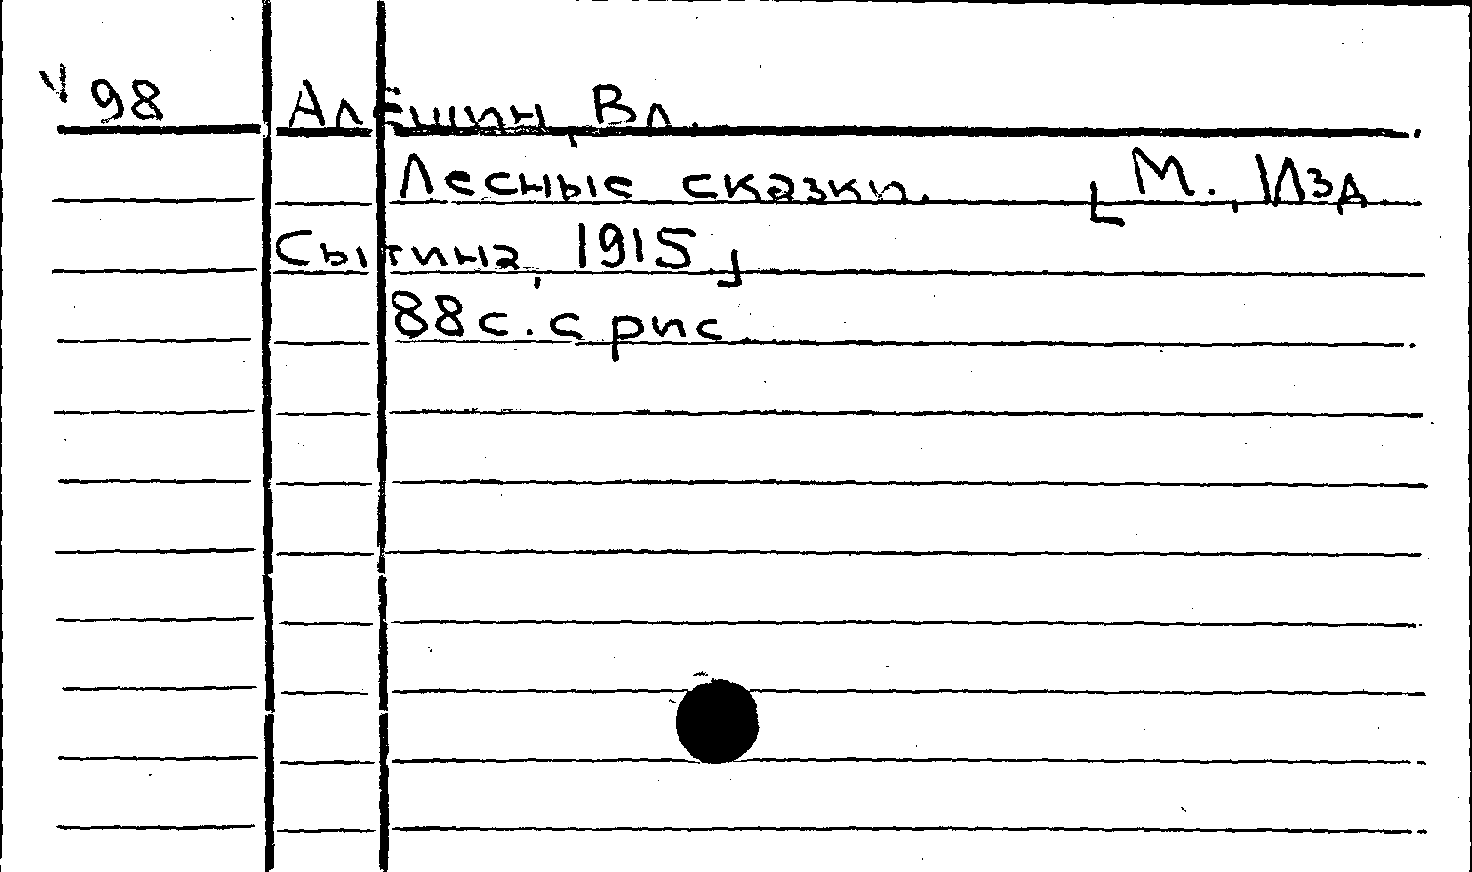 Ч98 Алёшин, Вл.
Лесные сказки. [М., Изд.
Сытина, 1915.]
88с. с рис.